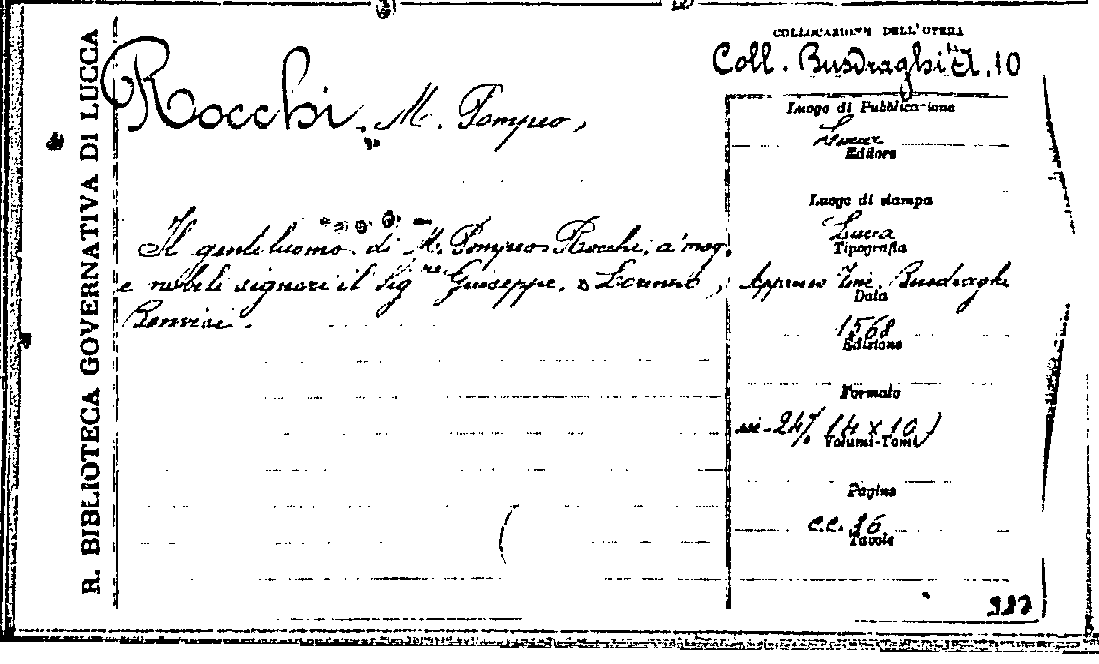 R. BIBLIOTECA GOVERNATIVA DI LUCCA
COLLOCAZIONE DELL'OPERA
Coll. Busdraghi A. 10
Rocchi. M. Pompeo,
Il gentiluomo di M. Pompeo Rocchi, a' mag.
e nobili signori il Sig.ri Giuseppe, Lorenzo,
Bonvisi.
Luogo di Pubblicazione
Lucca
Editore
Luogo di stampa
Lucca
Tipografia
Appresso Vinc. Busdraghi
Data
1568
Edizione
Formato
24° (14 x 10)
Volumi-Tomi
Pagine
c.c. 86
Tavole